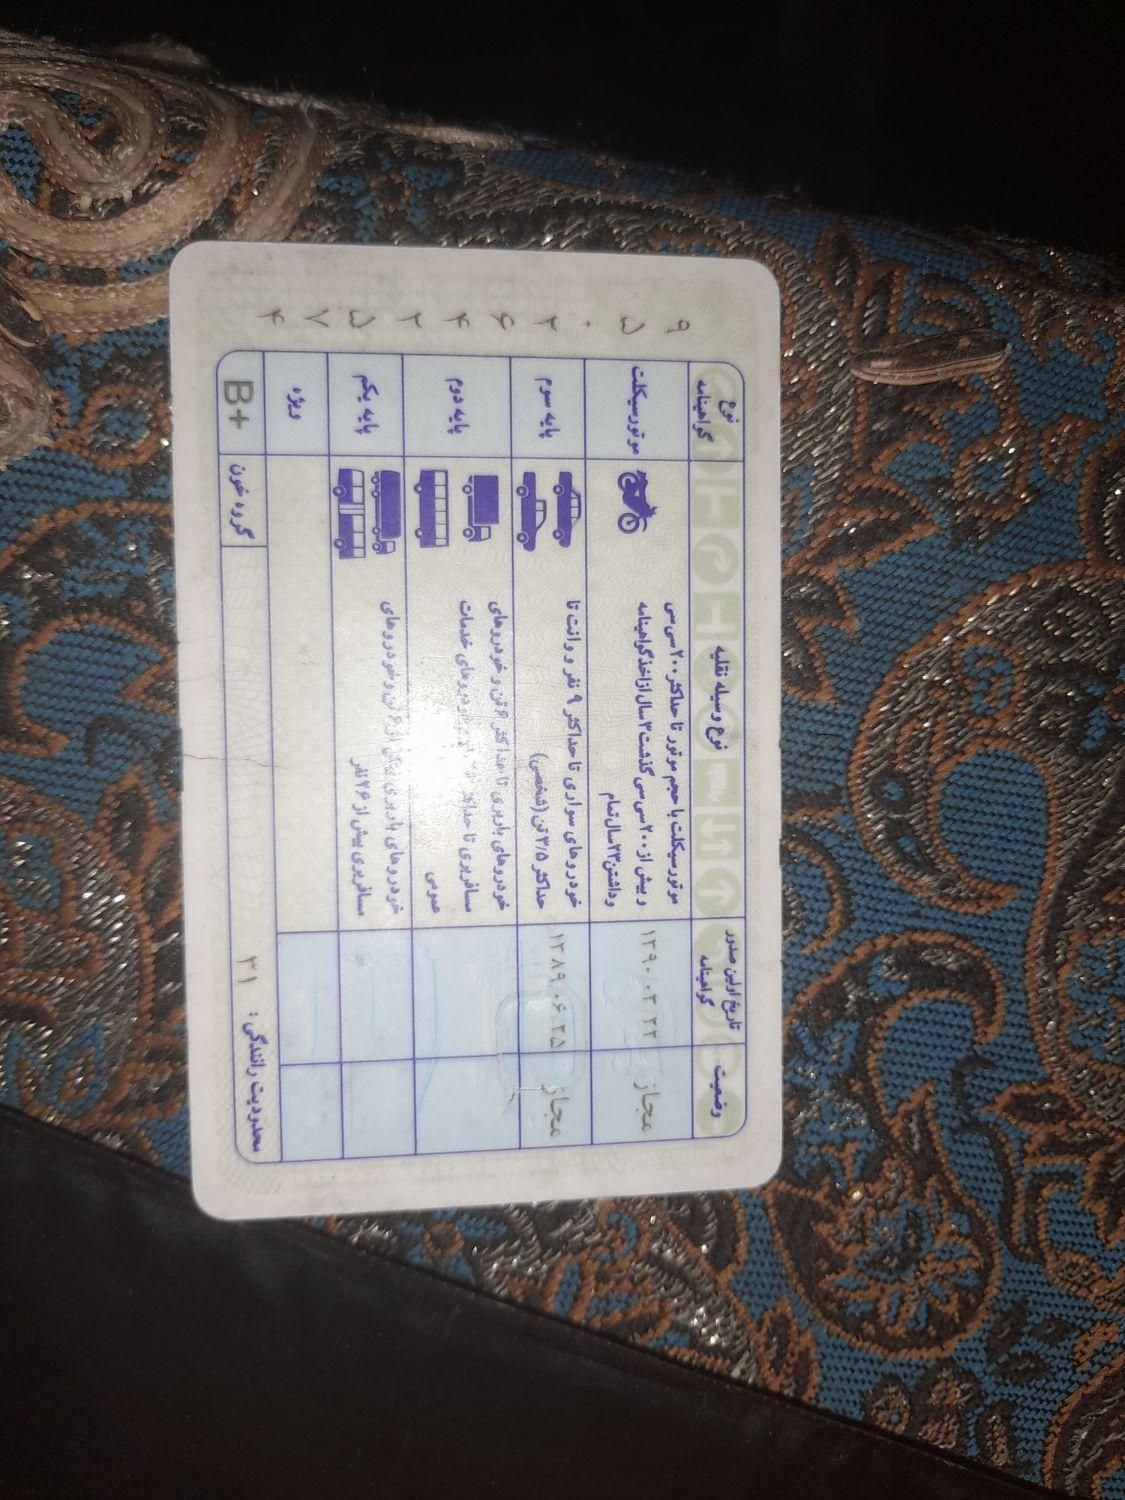 نوع گواهینامه
نوع وسیله نقلیه
تاریخ اولین صدور گواهینامه
وضعیت
موتورسیکلت
موتورسیکلت با حجم موتور تا حداکثر ۲۰۰ سی سی
و بیش از ۲۰۰ سی سی گذشت ۳ سال از اخذ گواهینامه
و داشتن ۲۳ سال تمام
۱۳۹۰ ۰۳ ۲۲
مجاز
پایه سوم
خودروهای سواری تا حداکثر ۹ نفر و وانت تا
حداکثر ۳/۵ تن (شخصی)
۱۳۸۹ ۰۶ ۲۵
مجاز
پایه دوم
خودروهای باربری تا حداکثر ۶ تن و خودروهای
مسافربری تا حداکثر خودروهای خدمات
عمومی
پایه یکم
خودروهای باربری بیش از ۶ تن و خودروهای
مسافربری بیش از ۲۶ نفر
ویژه
B+
گروه خون
محدودیت رانندگی: ۳۱
۹ ۵ ۰ ۲ ۶ ۴ ۲ ۵ ۷ ۴